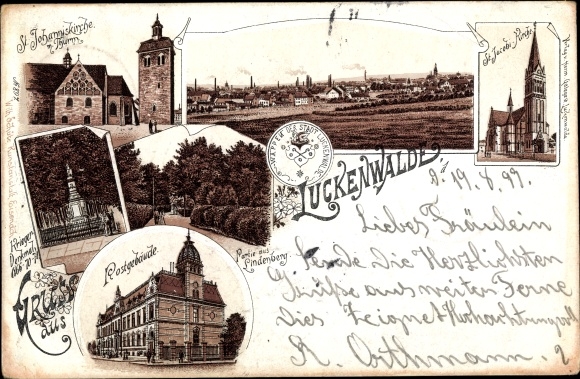 St. Johanniskirche
m. Thurm.
St. Jacobi Kirche
WAPPEN DER STADT LUCKENWALDE
LUCKENWALDE
d. 19.8.99.
Krieger
Denkmal
1866-70-71
Partie aus
Lindenberg.
Postgebäude.
GRUSS
aus
Liebes Fräulein
sende die Herzlichsten
Grüße aus weiter Ferne
dies zeignet Hochachtungsvoll
R. Orthmann.